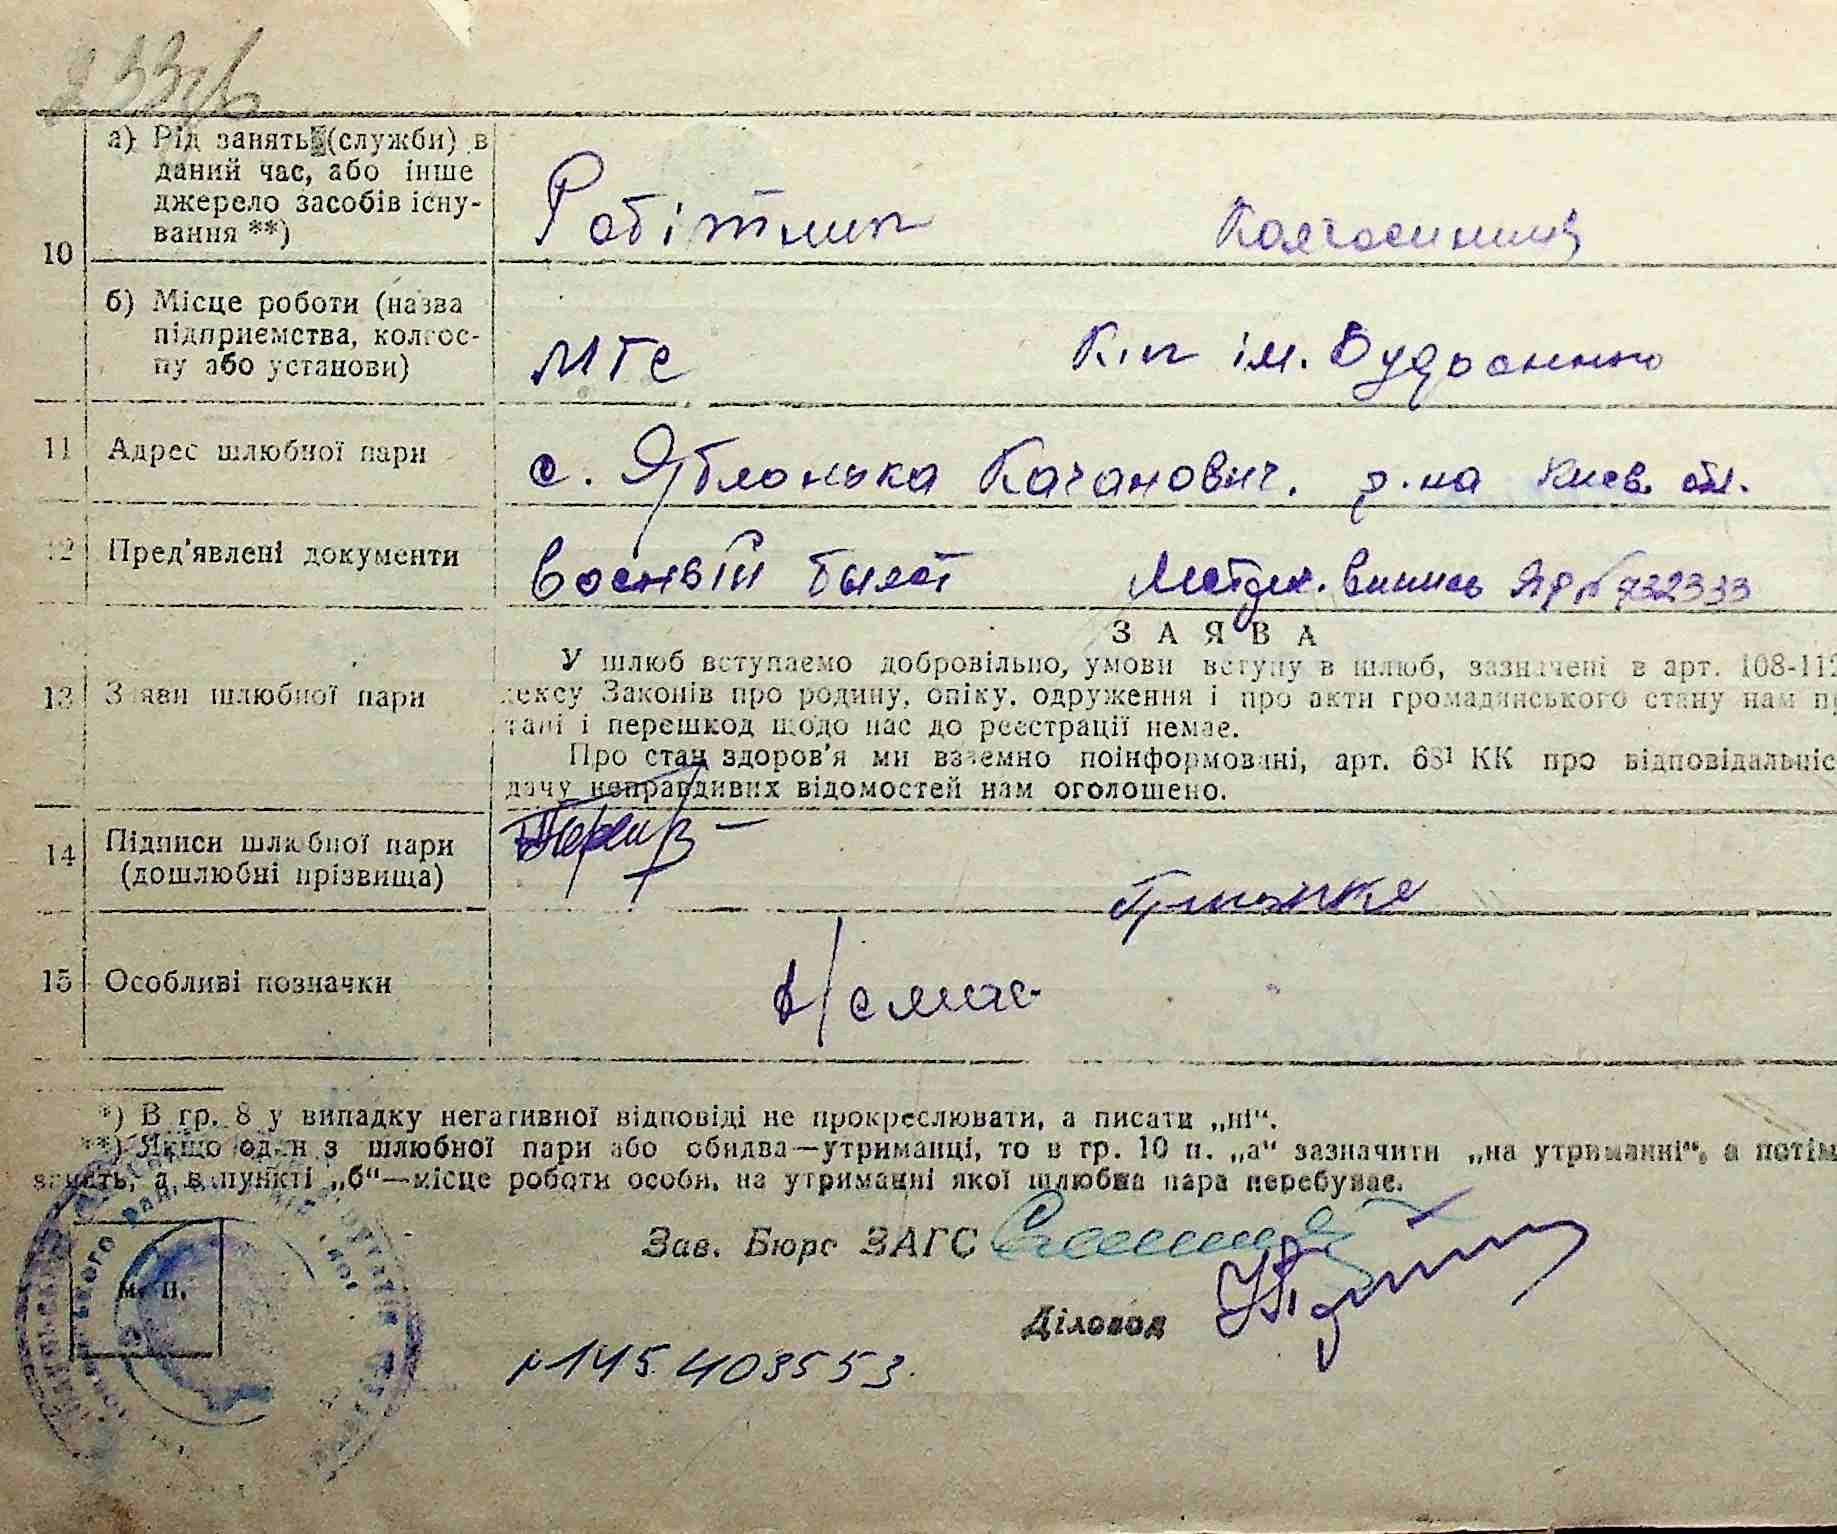 10
а) Рід занять (служби) в
даний час, або інше
джерело засобів існу-
вання **)
Робітник Колгоспниця
б) Місце роботи (назва
підприємства, колгос-
пу або установи)
МТС К-п ім. Будьонного
11 Адрес шлюбної пари
с. Яблонька Качанович. р-на Киев. обл.
12 Пред'явлені документи
Военвій билет Метрич. Випись ЯР № 732333
ЗАЯВА
13 Заяви шлюбної пари
У шлюб вступаємо добровільно, умови вступу в шлюб, зазначені в арт. 108-112
дексу Законів про родину, опіку, одруження і про акти громадянського стану нам пр
тані і перешкод щодо нас до реєстрації немає.
Про стан здоров'я ми взаємно поінформовані, арт. 68¹ КК про відповідальніс
дачу неправдивих відомостей нам оголошено.
14 Підписи шлюбної пари
(дошлюбні прізвища)
15 Особливі позначки
Немає
*) В гр. 8 у випадку негативної відповіді не прокреслювати, а писати „ні“.
**) Якщо один з шлюбної пари або обидва—утриманці, то в гр. 10 п. „а“ зазначити „на утриманні“, а потім
занять, а в пункті „б“—місце роботи особи, на утриманні якої шлюбна пара перебуває.
Зав. Бюро ЗАГС
м. п.
Діловод
№ 145403553.